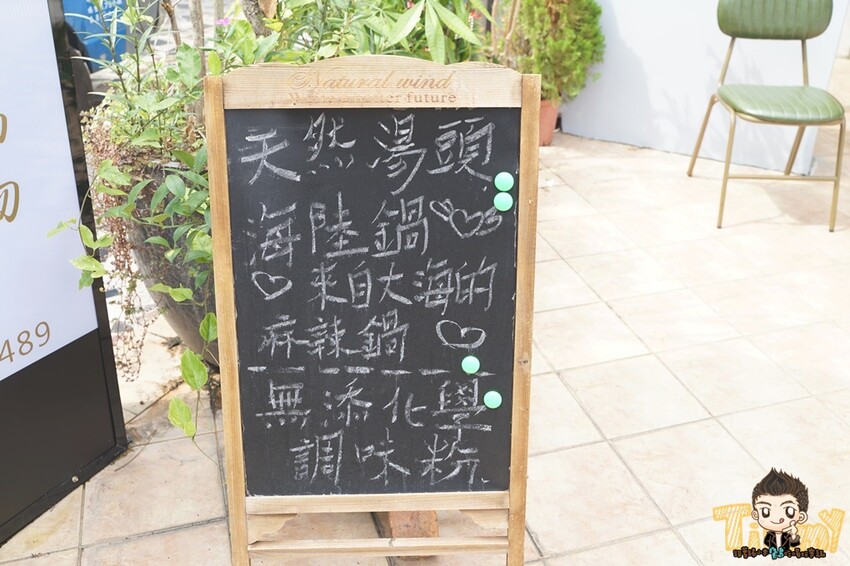 Natural wind
天然湯頭
海陸鍋
來自大海的
麻辣鍋
無添化學
調味粉
489